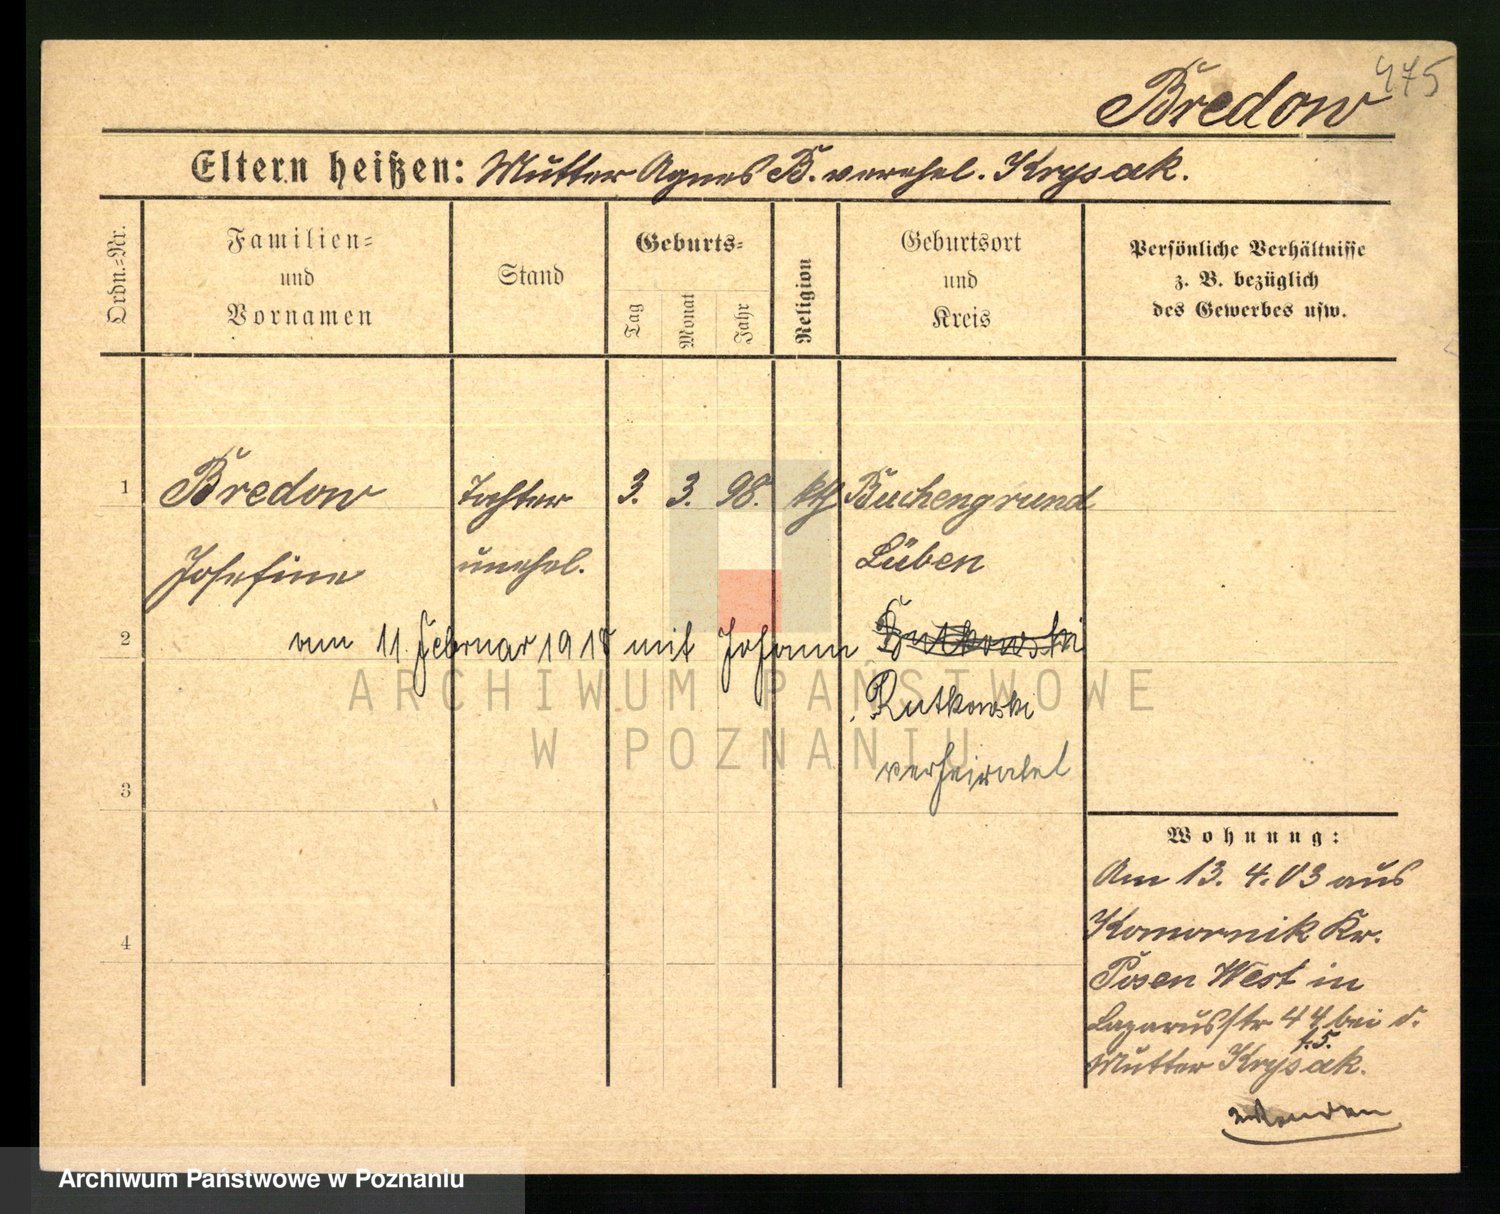 475
Bredow
Eltern heißen: Mutter Agnes B. verehel. Krysak.
Ordn.=Nr.
Familien=
und
Vornamen
Stand
Geburts=
Tag
Monat
Jahr
Religion
Geburtsort
und
Kreis
Persönliche Verhältnisse
z. B. bezüglich
des Gewerbes usw.
1 Bredow Tochter 3. 3. 98. kth Buchengrund
Josefine unehel. Lüben
2 am 11. Februar 1918 mit Johann Rutkowski
Rutkowski
verheiratet
3
Wohnung:
Am 13. 4. 03 aus
Komornik Kr.
Posen West in
Lazarusstr 44 bei d.
Mutter Krysak.
wenden
4
ARCHIWUM PAŃSTWOWE
W POZNANIU
Archiwum Państwowe w Poznaniu